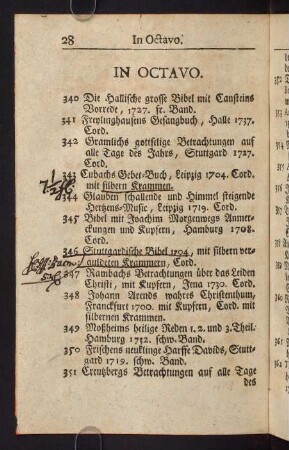 28 In Octavo.
IN OCTAVO.
340 Die Hallische grosse Bibel mit Cansteins
Vorrede, 1727. fr. Band.
341 Freylinghausens Gesangbuch, Halle 1737.
Cord.
342 Gramlichs gottselige Betrachtungen auf
alle Tage des Jahrs, Stuttgard 1727.
Cord.
343 Cubachs Gebet-Buch, Leipzig 1704. Cord.
mit silbern Krammen.
344 Glauben schallende und Himmel steigende
Hertzens-Music, Leipzig 1719. Cord.
345 Bibel mit Joachim Morgenwegs Anmer-
ckungen und Kupfern, Hamburg 1708.
Cord.
346 Stuttgardische Bibel 1704, mit silbern ver-
guldeten Krammern, Cord.
347 Rambachs Betrachtungen über das Leiden
Christi, mit Kupfern, Jena 1730. Cord.
348 Johann Arends wahres Christenthum,
Franckfurt 1700. mit Kupfern, Cord. mit
silbernen Krammen.
349 Moßheims heilige Reden 1. 2. und 3. Theil.
Hamburg 1732. schw. Band.
350 Frischens neuklinge Harffe Davids, Stutt-
gard 1719. schw. Band.
351 Creutzbergs Betrachtungen auf alle Tage
des